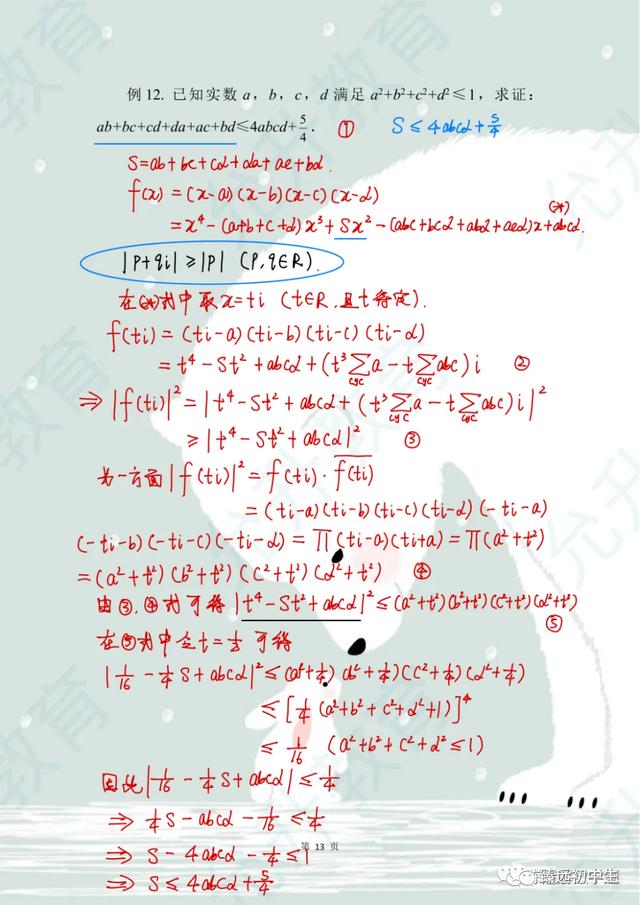 例12. 已知实数 a，b，c，d 满足 a²+b²+c²+d²≤1，求证：
ab+bc+cd+da+ac+bd≤4abcd+5/4． ① S≤4abcd+5/4
S=ab+bc+cd+da+ac+bd.
f(x) = (x-a)(x-b)(x-c)(x-d)
= x⁴-(a+b+c+d)x³+Sx²-(abc+bcd+abd+acd)x+abcd. (*)
|p+qi|≥|p| (p,q∈R).
在(*)式中取x=ti (t∈R,且t待定).
f(ti) = (ti-a)(ti-b)(ti-c)(ti-d)
= t⁴-St²+abcd+(t³∑cyc a-t∑cyc abc)i ②
⇒ |f(ti)|² = |t⁴-St²+abcd+(t³∑cyc a-t∑cyc abc)i|²
≥|t⁴-St²+abcd|² ③
另一方面|f(ti)|²=f(ti)·f(ti)‾
= (ti-a)(ti-b)(ti-c)(ti-d)(-ti-a)
(-ti-b)(-ti-c)(-ti-d) = ∏(ti-a)(ti+a) = ∏(a²+t²)
=(a²+t²)(b²+t²)(c²+t²)(d²+t²) ④
由③,④式可得|t⁴-St²+abcd|²≤(a²+t²)(b²+t²)(c²+t²)(d²+t²)
⑤
在⑤式中令t=1/2可得
|1/16-1/4S+abcd|²≤(a²+1/4)(b²+1/4)(c²+1/4)(d²+1/4)
≤[1/4(a²+b²+c²+d²+1)]⁴
≤1/16 (a²+b²+c²+d²≤1)
因此|1/16-1/4S+abcd|≤1/4
⇒ 1/4S-abcd-1/16≤1/4
第 13 页
⇒ S-4abcd-1/4≤1
⇒ S≤4abcd+5/4
臻远初中生
教育
允升教育